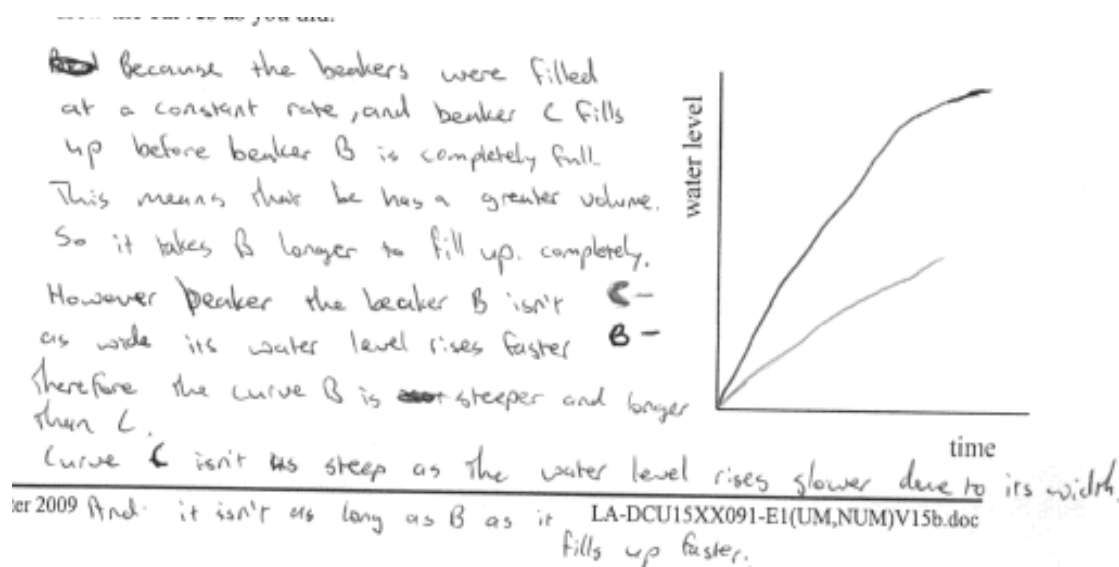 Because the beakers were filled
at a constant rate, and beaker C fills
up before beaker B is completely full.
This means that be has a greater volume.
So it takes B longer to fill up. completely.
However beaker the beaker B isn't
as wide its water level rises faster
Therefore the curve B is steeper and longer
than C.
Curve C isn't as steep as the water level rises slower due to its width.
And it isn't as long as B as it
fills up faster.
C -
B -
water level
time
ter 2009
LA-DCU15XX091-E1(UM,NUM)V15b.doc